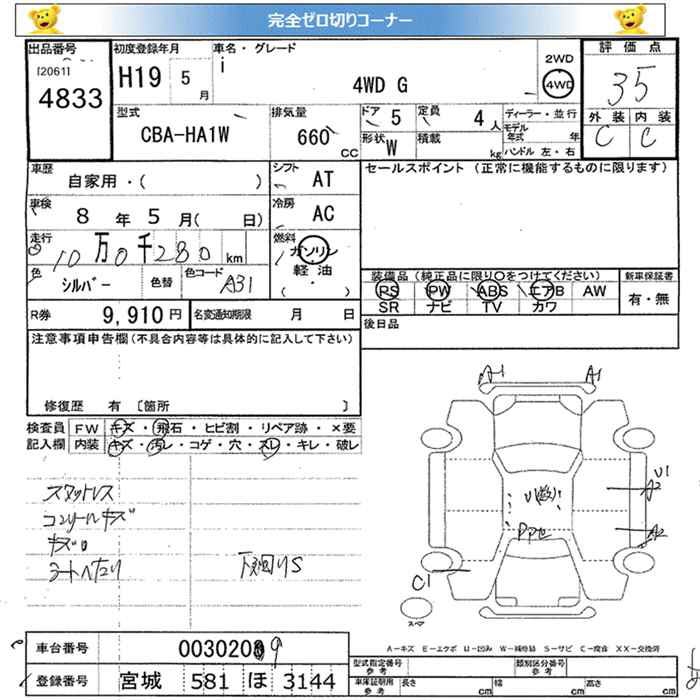 完全ゼロ切りコーナー
出品番号
I20611
4833
初度登録年月
H19 5 月
車名・グレード
i
4WD G
2WD
4WD
評価点
35
外装 内装
C C
型式
CBA-HA1W
排気量
660 CC
ドア 5
定員 4 人
形状 W
積載 kg
ディーラー・並行
モデル年式 年
ハンドル 左・右
車歴
自家用・( )
シフト AT
セールスポイント (正常に機能するものに限ります)
車検
8 年 5 月( 日)
冷房 AC
走行
10万0千280 km
燃料
ガソリン
軽油
( ・ )
色 シルバー
色替
色コード A31
装備品(純正品に限り○をつけてください)
新車保証書
PS PW ABS エアB AW
有・無
SR ナビ TV カワ
R券 9,910円
名変通知期限 月 日
後日品
注意事項申告欄(不具合内容等は具体的に記入して下さい)
修復歴 有 〔箇所 〕
検査員 FW キズ・飛石・ヒビ割・リペア跡・×要
記入欄 内装 キズ・汚レ・コゲ・穴・スレ・キレ・破レ
スタットレス
コンソールキズ
シートヘたり
下廻りS
A1 A1
U1
A2
A2
C1
スペア
A-キズ E-エクボ U-凹み W-補修跡 S-サビ C-腐食 XX-交換済
車台番号 0030209
登録番号 宮城 581 ほ 3144
型式指定番号
参考
類別区分番号
参考
車庫証明用
参考
長さ cm 幅 cm 高さ cm